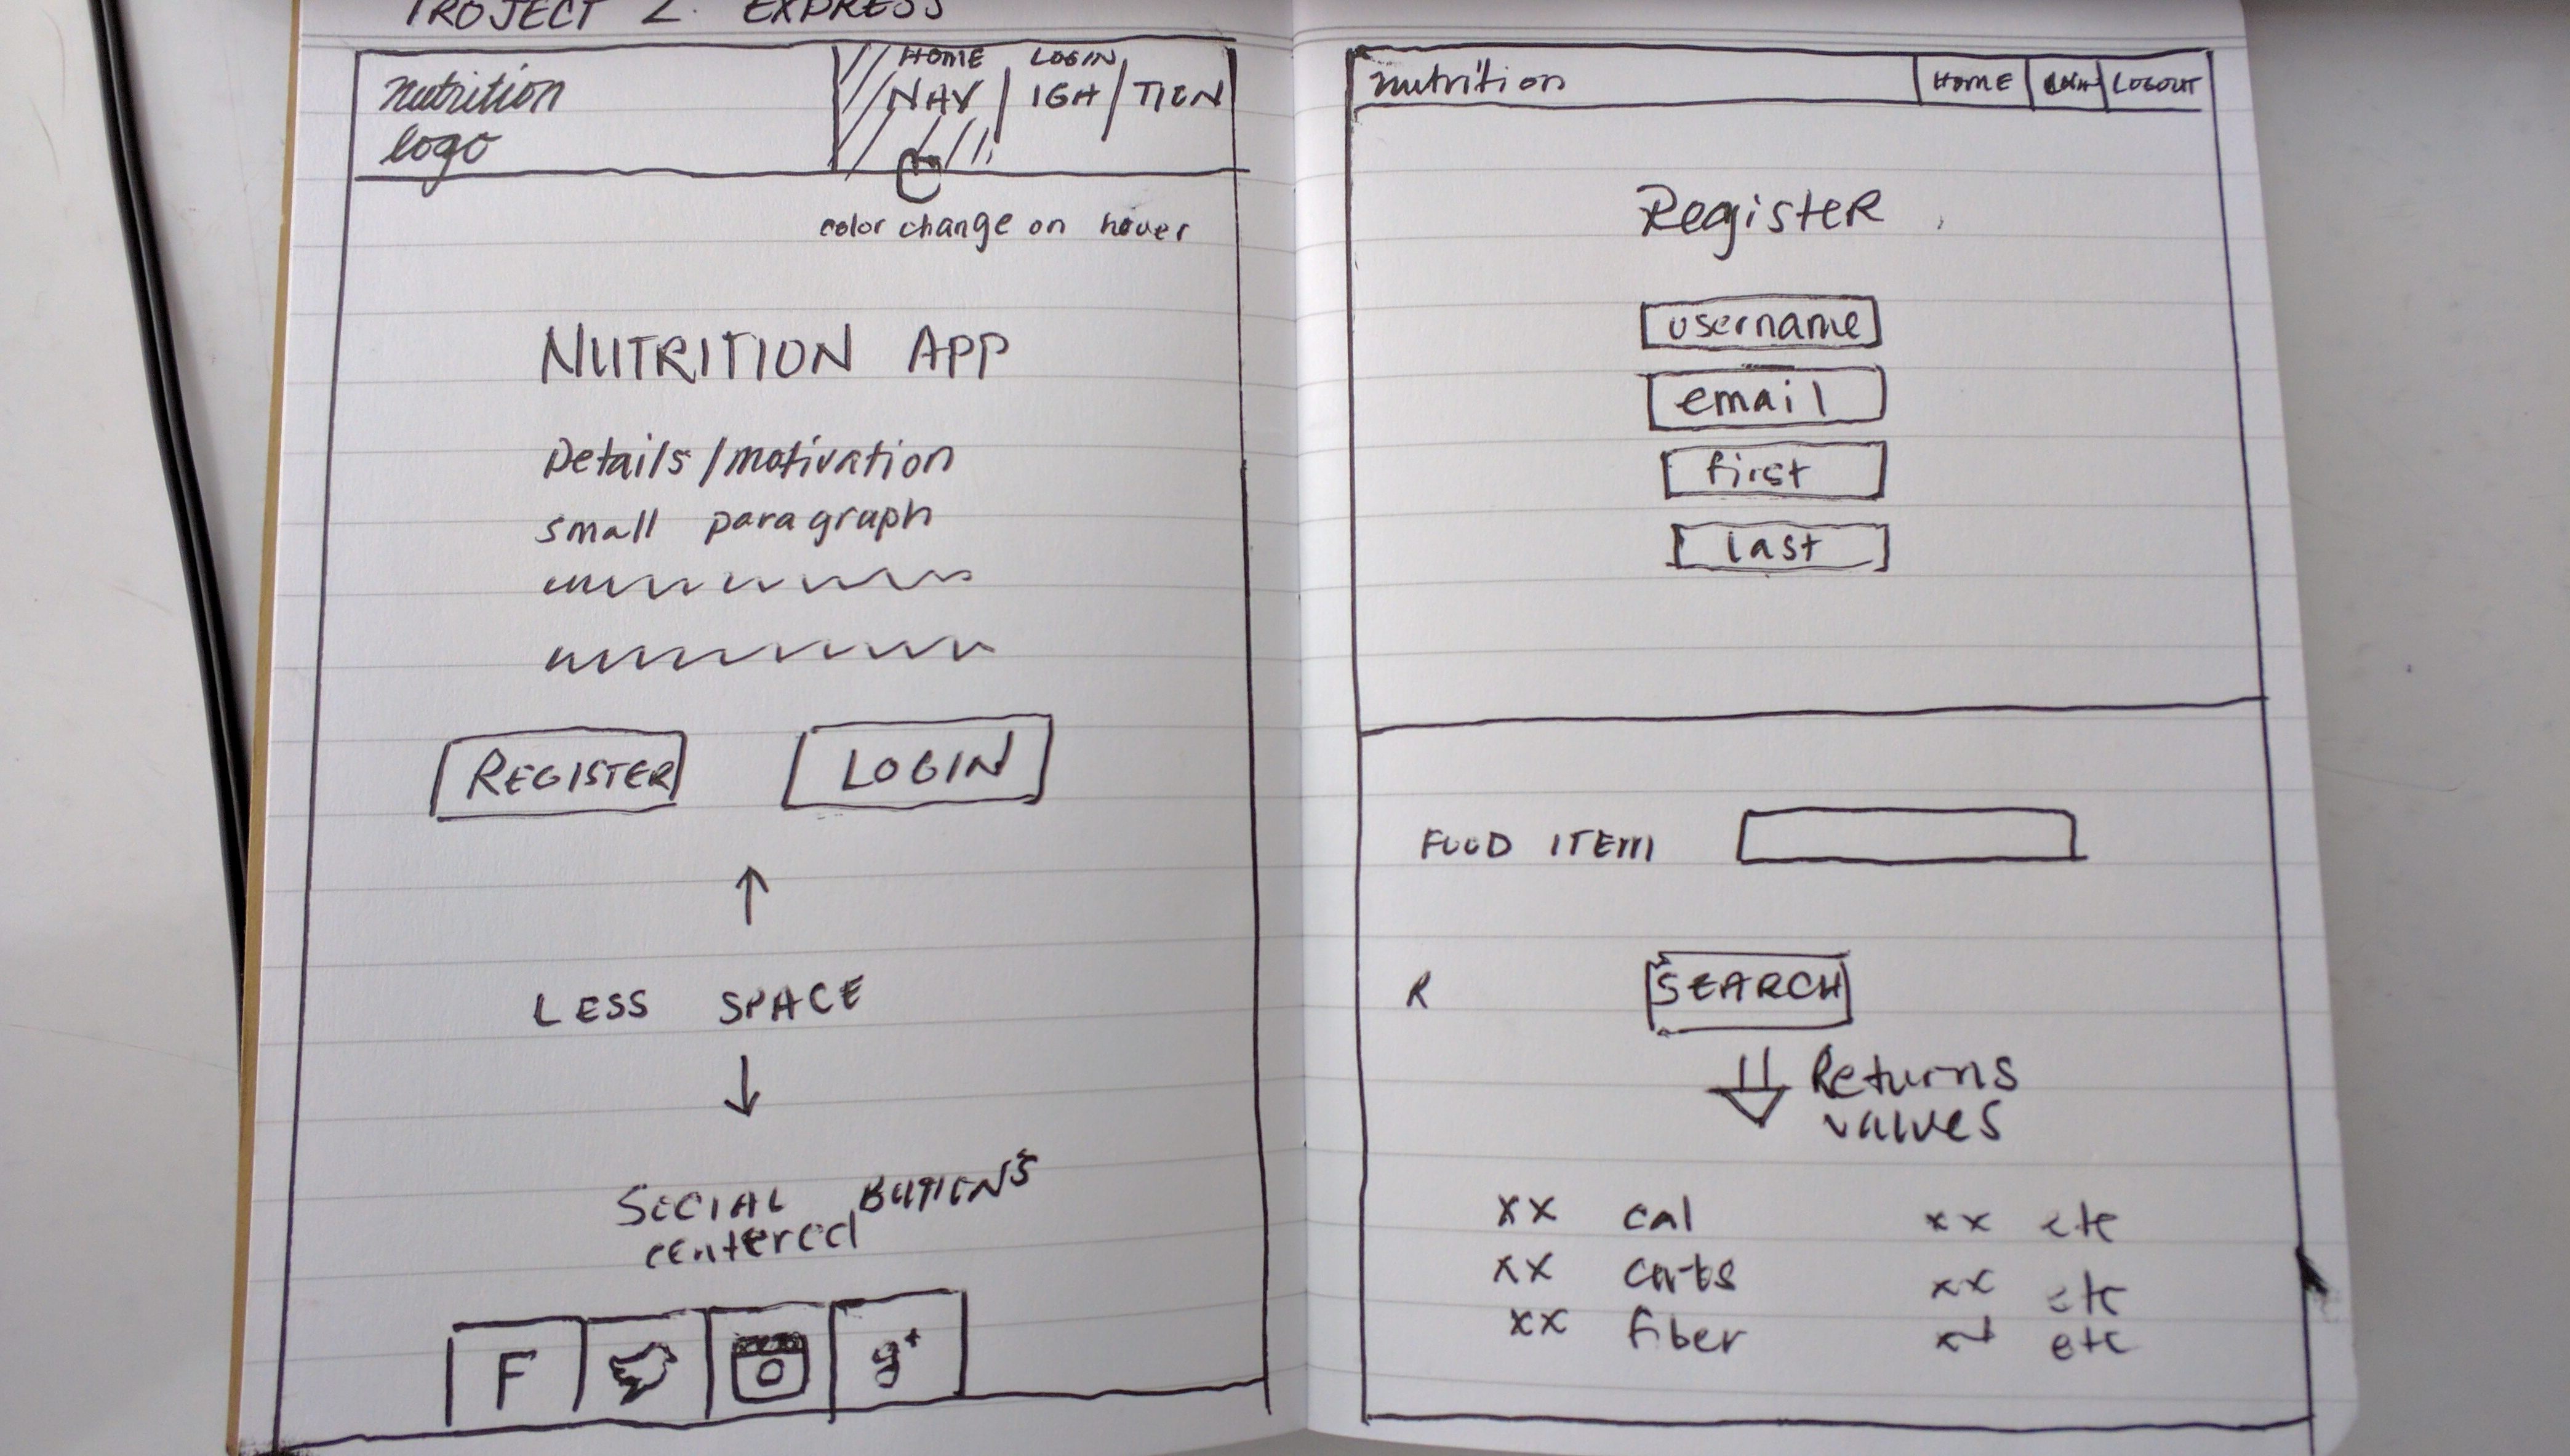 PROJECT 2. EXPRESS
nutrition
logo
HOME LOGIN
NAV / IGA / TION
color change on hover
NUTRITION APP
Details / motivation
small paragraph
REGISTER LOGIN
LESS SPACE
SOCIAL BUTTONS
centered
F g+
nutrition HOME LOGOUT
Register
username
email
first
last
FOOD ITEM
R SEARCH
Returns
values
xx cal xx etc
xx carbs xx etc
xx fiber etc